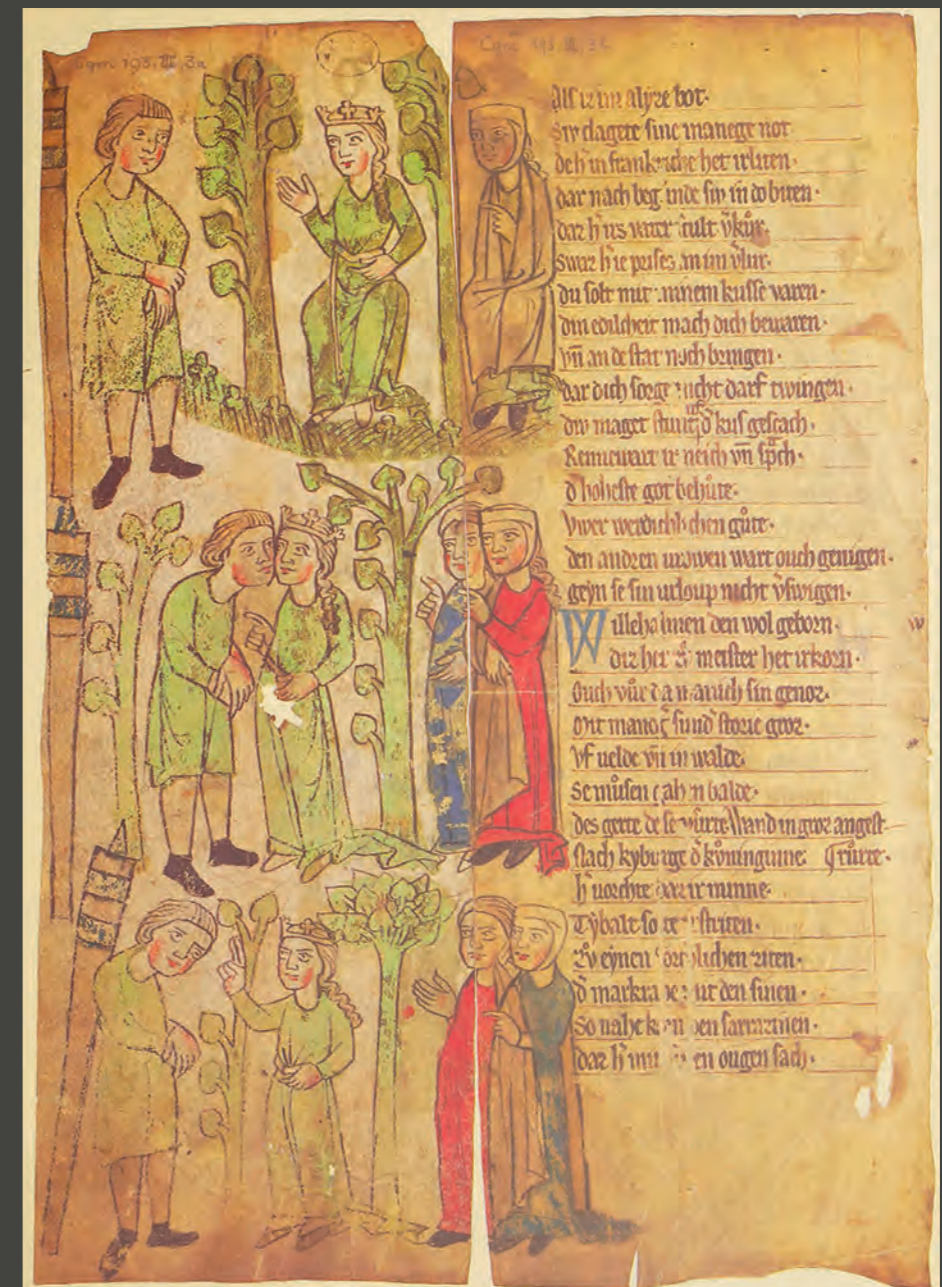 Cgm 193, III, 3a
Cgm 193, III, 3a
Als ir im alyze bot.
Siv clagete sine manege not
de h̓ in frankriche het irliten.
dar nach beginde siv in do biten.
daz h̓ irs vater
Swaz h̓ ie prises an im v̓lur.
du solt mit minem kusse varen.
din edilcheit mach dich bewaren.
vn̄ an de stat noch bringen.
dar dich sorge nicht darf twingen.
div maget stunt uf d̓ kus gescach.
Rennewart ir neich vn̄ sp̊ch.
d̓ hoheste got behůte.
Vwer werdichlichen gůte.
den andren urowen wart ouch genigen.
geyn se sin urloup nicht v̓swigen.
Willehalmen den wol geborn.
Diz her zv̊ meister het irkorn.
Ouch vůr da manich sin genoz.
Mit manoch sund storie groz.
Vf uelde vn̄ in walde.
Se můsen gahen balde.
des gerte de se vůrte Wand in groz angest
Nach kyburge d̓ kůninginne růrte.
h̓ uorchte daz ir minne.
Tybalt so
Zv eynen
d̓ markrave mit den sinen.
So nahe kvmen den sarrazinen.
daz h̓ mit den ougen sach.